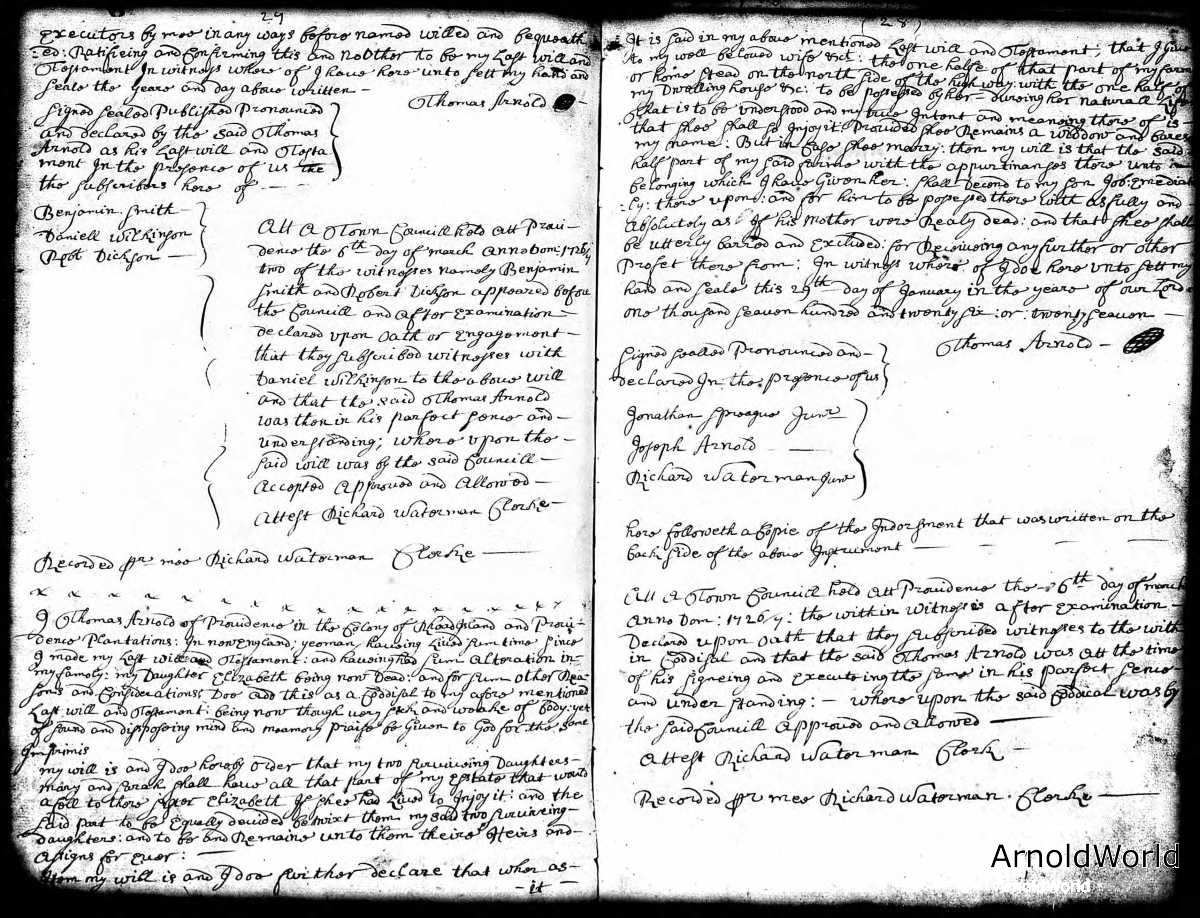 27
Executors by mee in any ways before named willed and bequeath
:ed: Ratifieing and Confirming this and no Other to be my Last will and
Testament In witness where of I have here unto sett my hand and
seale the yeare and day above written –
Thomas Arnold
Signed sealed Published Pronounced
and declared by the said Thomas
Arnold as his Last will and Testa
ment In the presence of us the
the subscribers here of
Benjamin Smith
Daniell Wilkinson
Robt Dickson
Att A Town Councill held Att Provi-
dence the 6th day of march Anno Dom: 1726/7
two of the witnesses namely Benjamin
Smith and Robert Dickson appeared before
the Councill and After Examination –
declared upon Oath or Engagement –
that they subscribed witnesses with
Daniel Wilkinson to the above will
and that the said Thomas Arnold
was then in his parfect sence and –
understanding; where upon the –
said will was by the said Councill –
Accepted Approved and Allowed –
Attest Richard Waterman Clerke –
Recorded pr mee Richard Waterman Clerke
I Thomas Arnold of Providence in the Colony of Rhoad Island and Provi-
dence Plantations: In new England; yeoman, haveing Lived sum time since
I made my Last will and Testament: and haveing had sum Alteration in-
my famely: my Daughter Elizabeth being now Dead: and for sum other Rea-
sons and Considerations, Doe Add this as a Coddisal to my afore mentioned
Last will and Testament: being now though very sick and weake of body: yet
of sound and disposeing mind and meamory praise be Given to God for the same
Imprimis
my will is and I doe hereby order that my two surviveing Daughters-
mary and sarah shall have all that part of my Estate that would
a fell to there sister Elizabeth If shee had Lived to Injoy it: and the
said part to be Equally decided betwixt them my said two surviveing-
daughters: and to be and Remaine unto them theire Heirs and-
Asigns for Ever:
Item my will is and I doe further declare that wher as-
- it -
(28)
It is said in my above mentioned Last will and Testament; that I gave
to my well beloved wife &c: the one halfe of that part of my farm
or home stead on the north side of the high way: with the one half of
my Dwelling house &c: to be posessed by her – dureing her naturall Life
that is to be understood and my true Intent and meaneing there of is
that shee shall so Injoy it: Provided shee Remains a widdow and bares
my name: But in Case shee marry: then my will is that the said
half part of my said farme with the appurtinances there unto
belonging which I have Given her: shall Decend to my son Job: Emediat
:ly: there upon: and for him to be possesed there with as fully and
absolutely as If his mother were Realy dead: and that shee shall
be utterly barred and Excluded: for Receiveing any further or other
Profet there from: In witness where of I doe here unto sett my
hand and seale this 29th day of January in the yeare of our Lord
one thousand seaven hundred and twenty six: or: twenty seaven –
Thomas Arnold –
Signed sealled Pronounced and-
declared In the presence of us
Jonathan Spreague Junr
Joseph Arnold
Richard Waterman Junr
here followeth a Copie of the Indorsment that was written on the
back side of the above Instrument
Att A Town Councill held Att Providence the 6th day of march
Anno Dom: 1726/7: the within Witnesses after Examination
Declared upon Oath that they subscribed witnesses to the with
in Coddisal and that the said Thomas Arnold was Att the time
of his signeing and Executeing the same in his parfect sence
and understanding: – where upon the said Coddical was by
the said Councill Approved and Allowed
Attest Richard Waterman Clerk –
Recorded pr mee Richard Waterman Clerke
ArnoldWorld